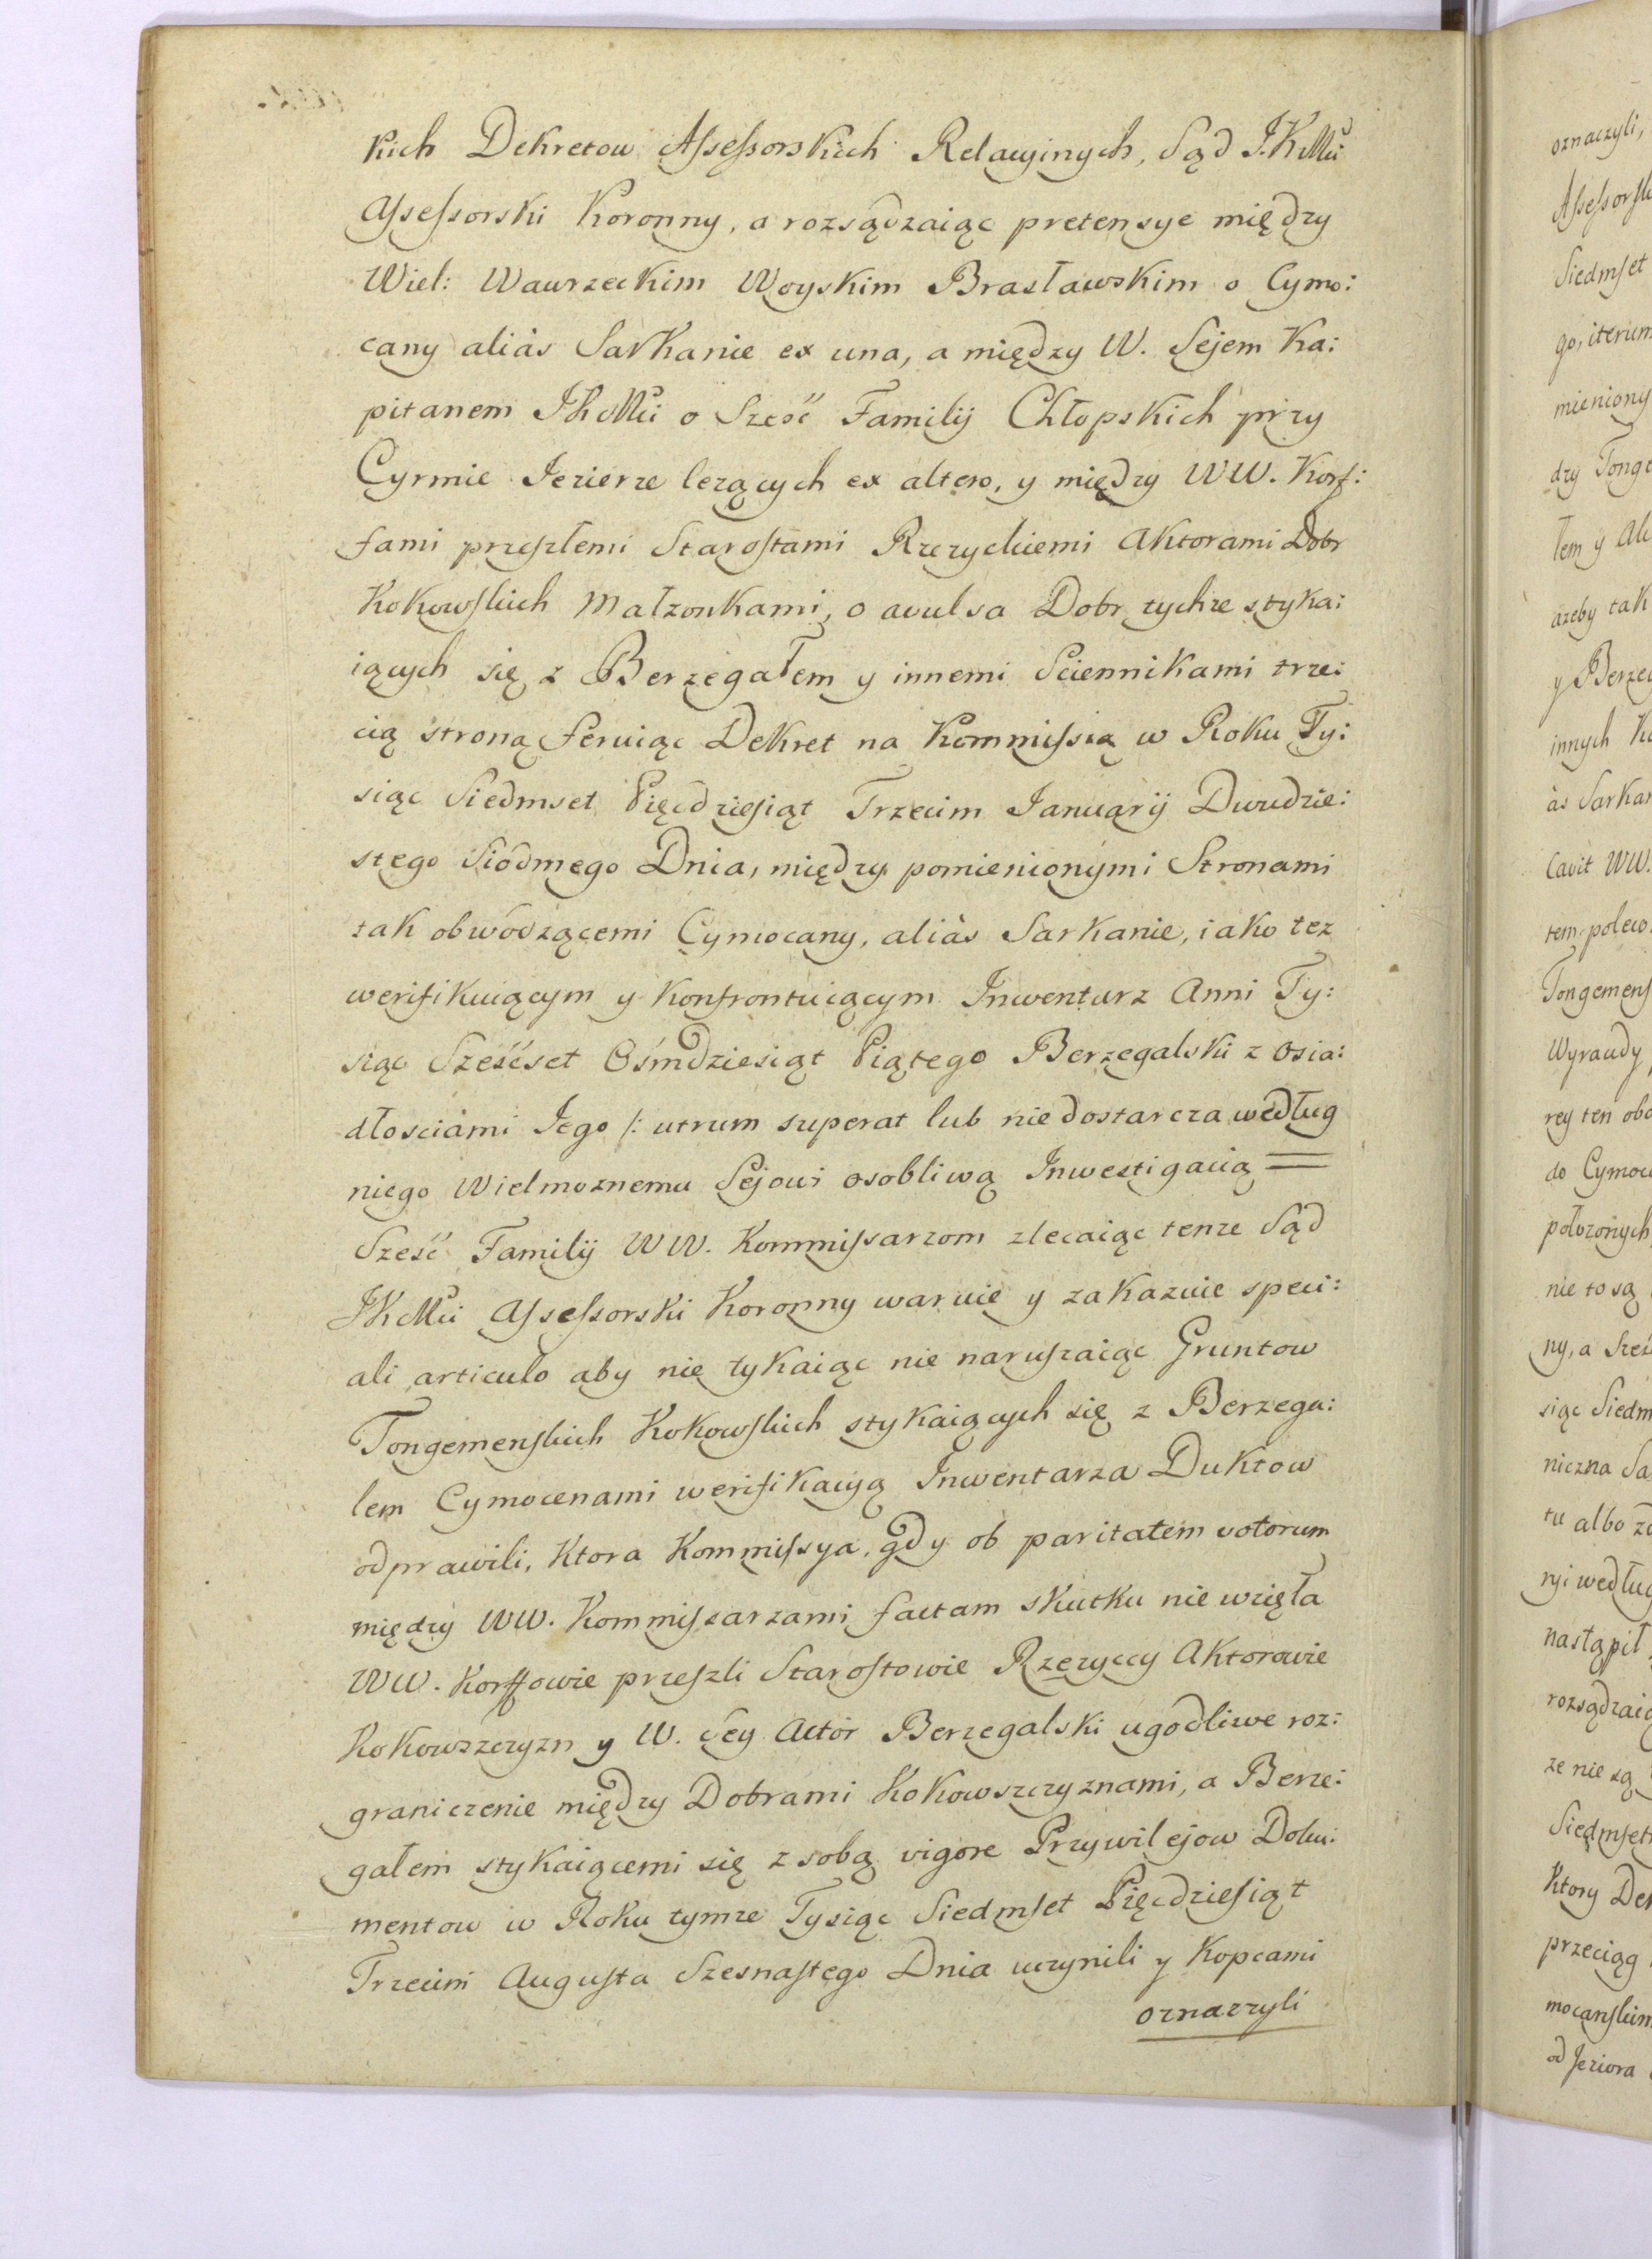 kich Dekretow Assessorskich Relacyinych, Sąd J.K.Mci
Assessorski Koronny, a rozsądzaiąc pretensye między
Wiel: Wawrzeckim Woyskim Brasławskim o Cymo:
cany aliàs Sarkanie ex una, a między W. Sejem Ka:
pitanem JKMci o Sześć Familij Chłopskich przy
Cyrmie Jezierze lezących ex altero, y między WW. Korf:
fami przeszłemi Starostami Rzezyckiemi Aktorami Dobr
Kokowskich Małzonkami, o avulsa Dobr tychze styka:
iących się z Berzegałem y innemi Sciennikami trze:
cią stroną feruiąc Dekret na Kommissią w Roku Ty:
siąc Siedmset Pięcdziesiąt Trzecim Januarij Dwudzie:
stego Siódmego Dnia, między pomienionymi Stronami
tak obwódzącemi Cymocany, aliàs Sarkanie, iako tez
werifikuiącym y konfrontuiącym Inwentarz Anni Ty:
siąc Sześćset Ośmdziesiąt Piątego Berzegalski z Osia:
dłosciami Jego /: utrum superat lub niedostarcza według
niego Wielmoznemu Sejowi osobliwą Inwestigacią =
Sześć Familij WW. Kommissarzom zlecaiąc tenze Sąd
JKMci Assessorski Koronny waruie y zakazuie speci:
ali articulo aby nie tykaiąc nie naruszaiąc Gruntow
Tongemenskich Kokowskich stykaiących się z Berzega:
lem Cymocenami werifikacyą Inwentarza Duktow
odprawili, Ktora Kommissya, gdy ob paritatem votorum
między WW. Kommissarzami factam skutku nie wzięła
WW. Korffowie przeszli Starostowie Rzezyccy Aktorowie
Kokowszczyzn y W. Sey Actòr Berzegalski ugodliwe roz:
graniczenie między Dobrami Kokowszczyznami, a Berze:
gałem stykaiącemi się z sobą vigore Przywilejow Doku:
mentow w Roku tymze Tysiąc Siedmset Pięcdziesiąt
Trzecim Augusta Szesnastego Dnia uczynili y Kopcami
oznaczyli
oznaczyli,
Siedmset
go, iterum
mieniony
azeby tak
innych
às Sarkan
Cavit WW.
Wyraudy
rey ten
do Cymoc
połozonych
nie to są
ny, a
siąc Siedm
niczna
tu albo
ryi według
nastąpił
rozsądzaią
ze nie są
Siedmset
Ktory
przeciąg
od Jeziora